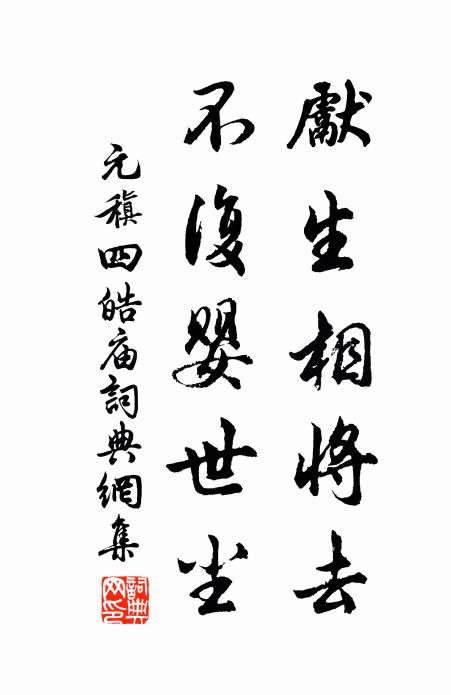 獻生相將去
不復嬰世尘
元稹四皓庙詞典網集
詞典
网印